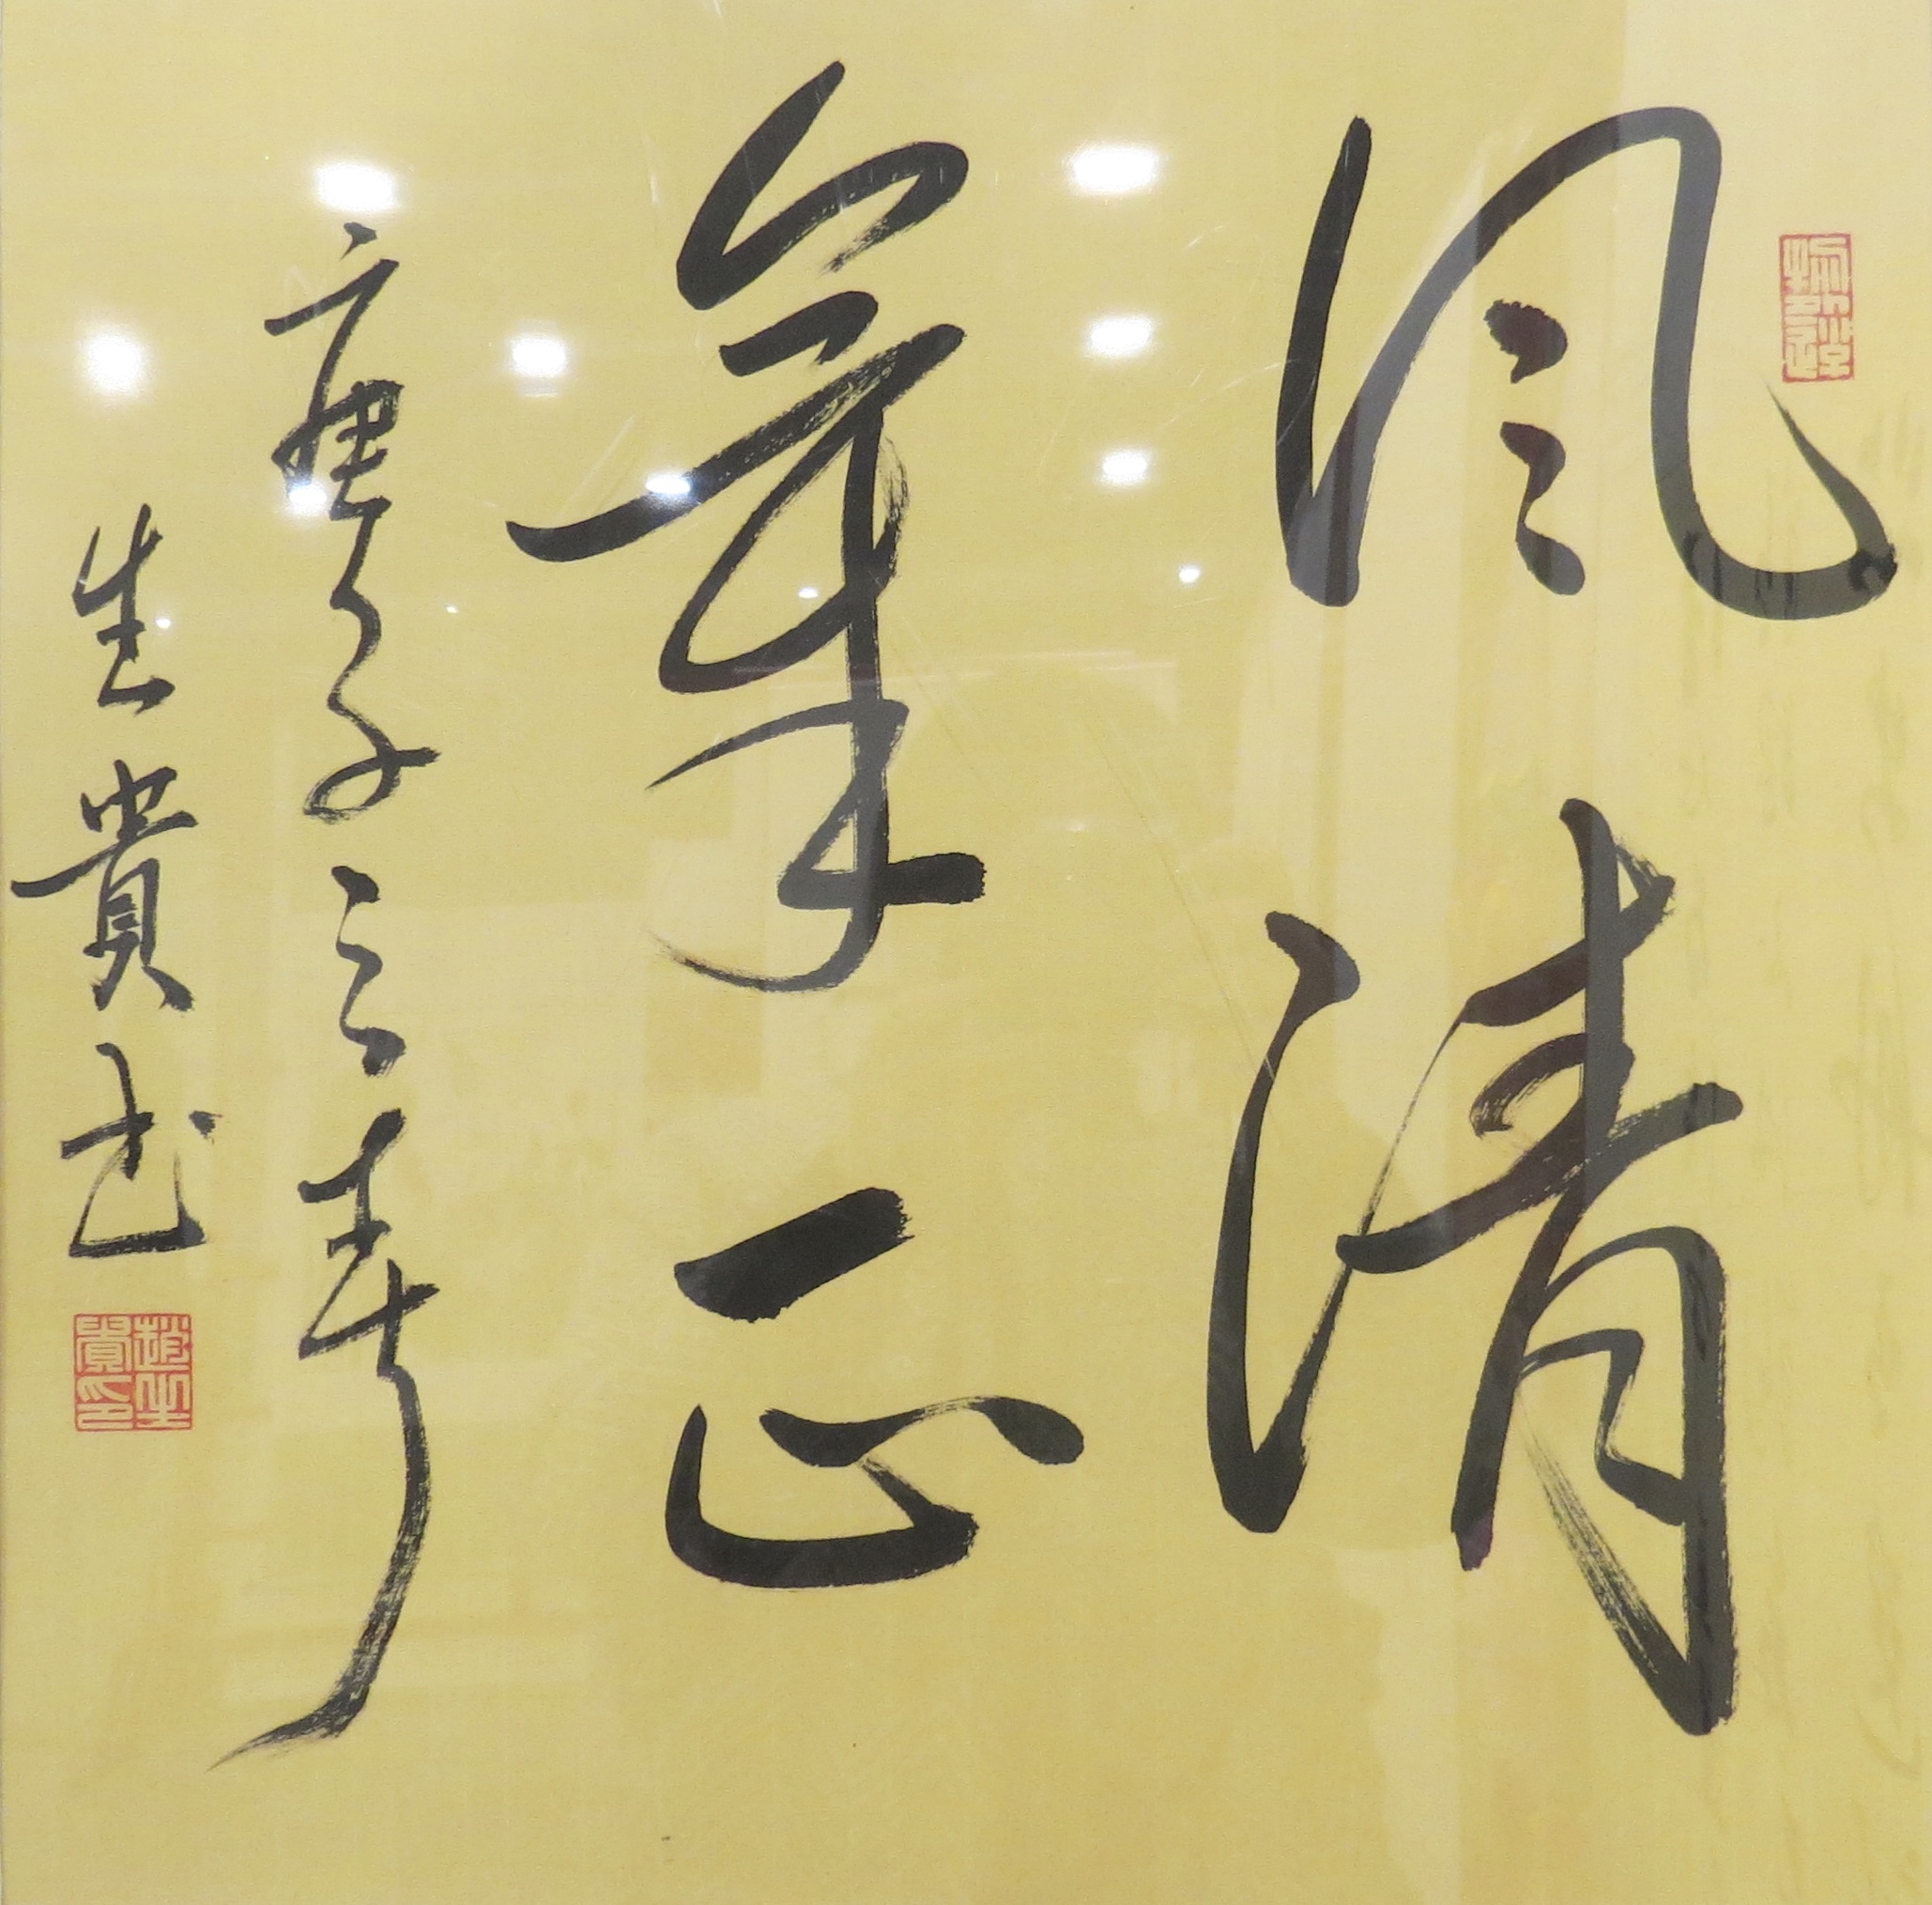 風清
氣正
庚子之春
生貴书
趙生貴印